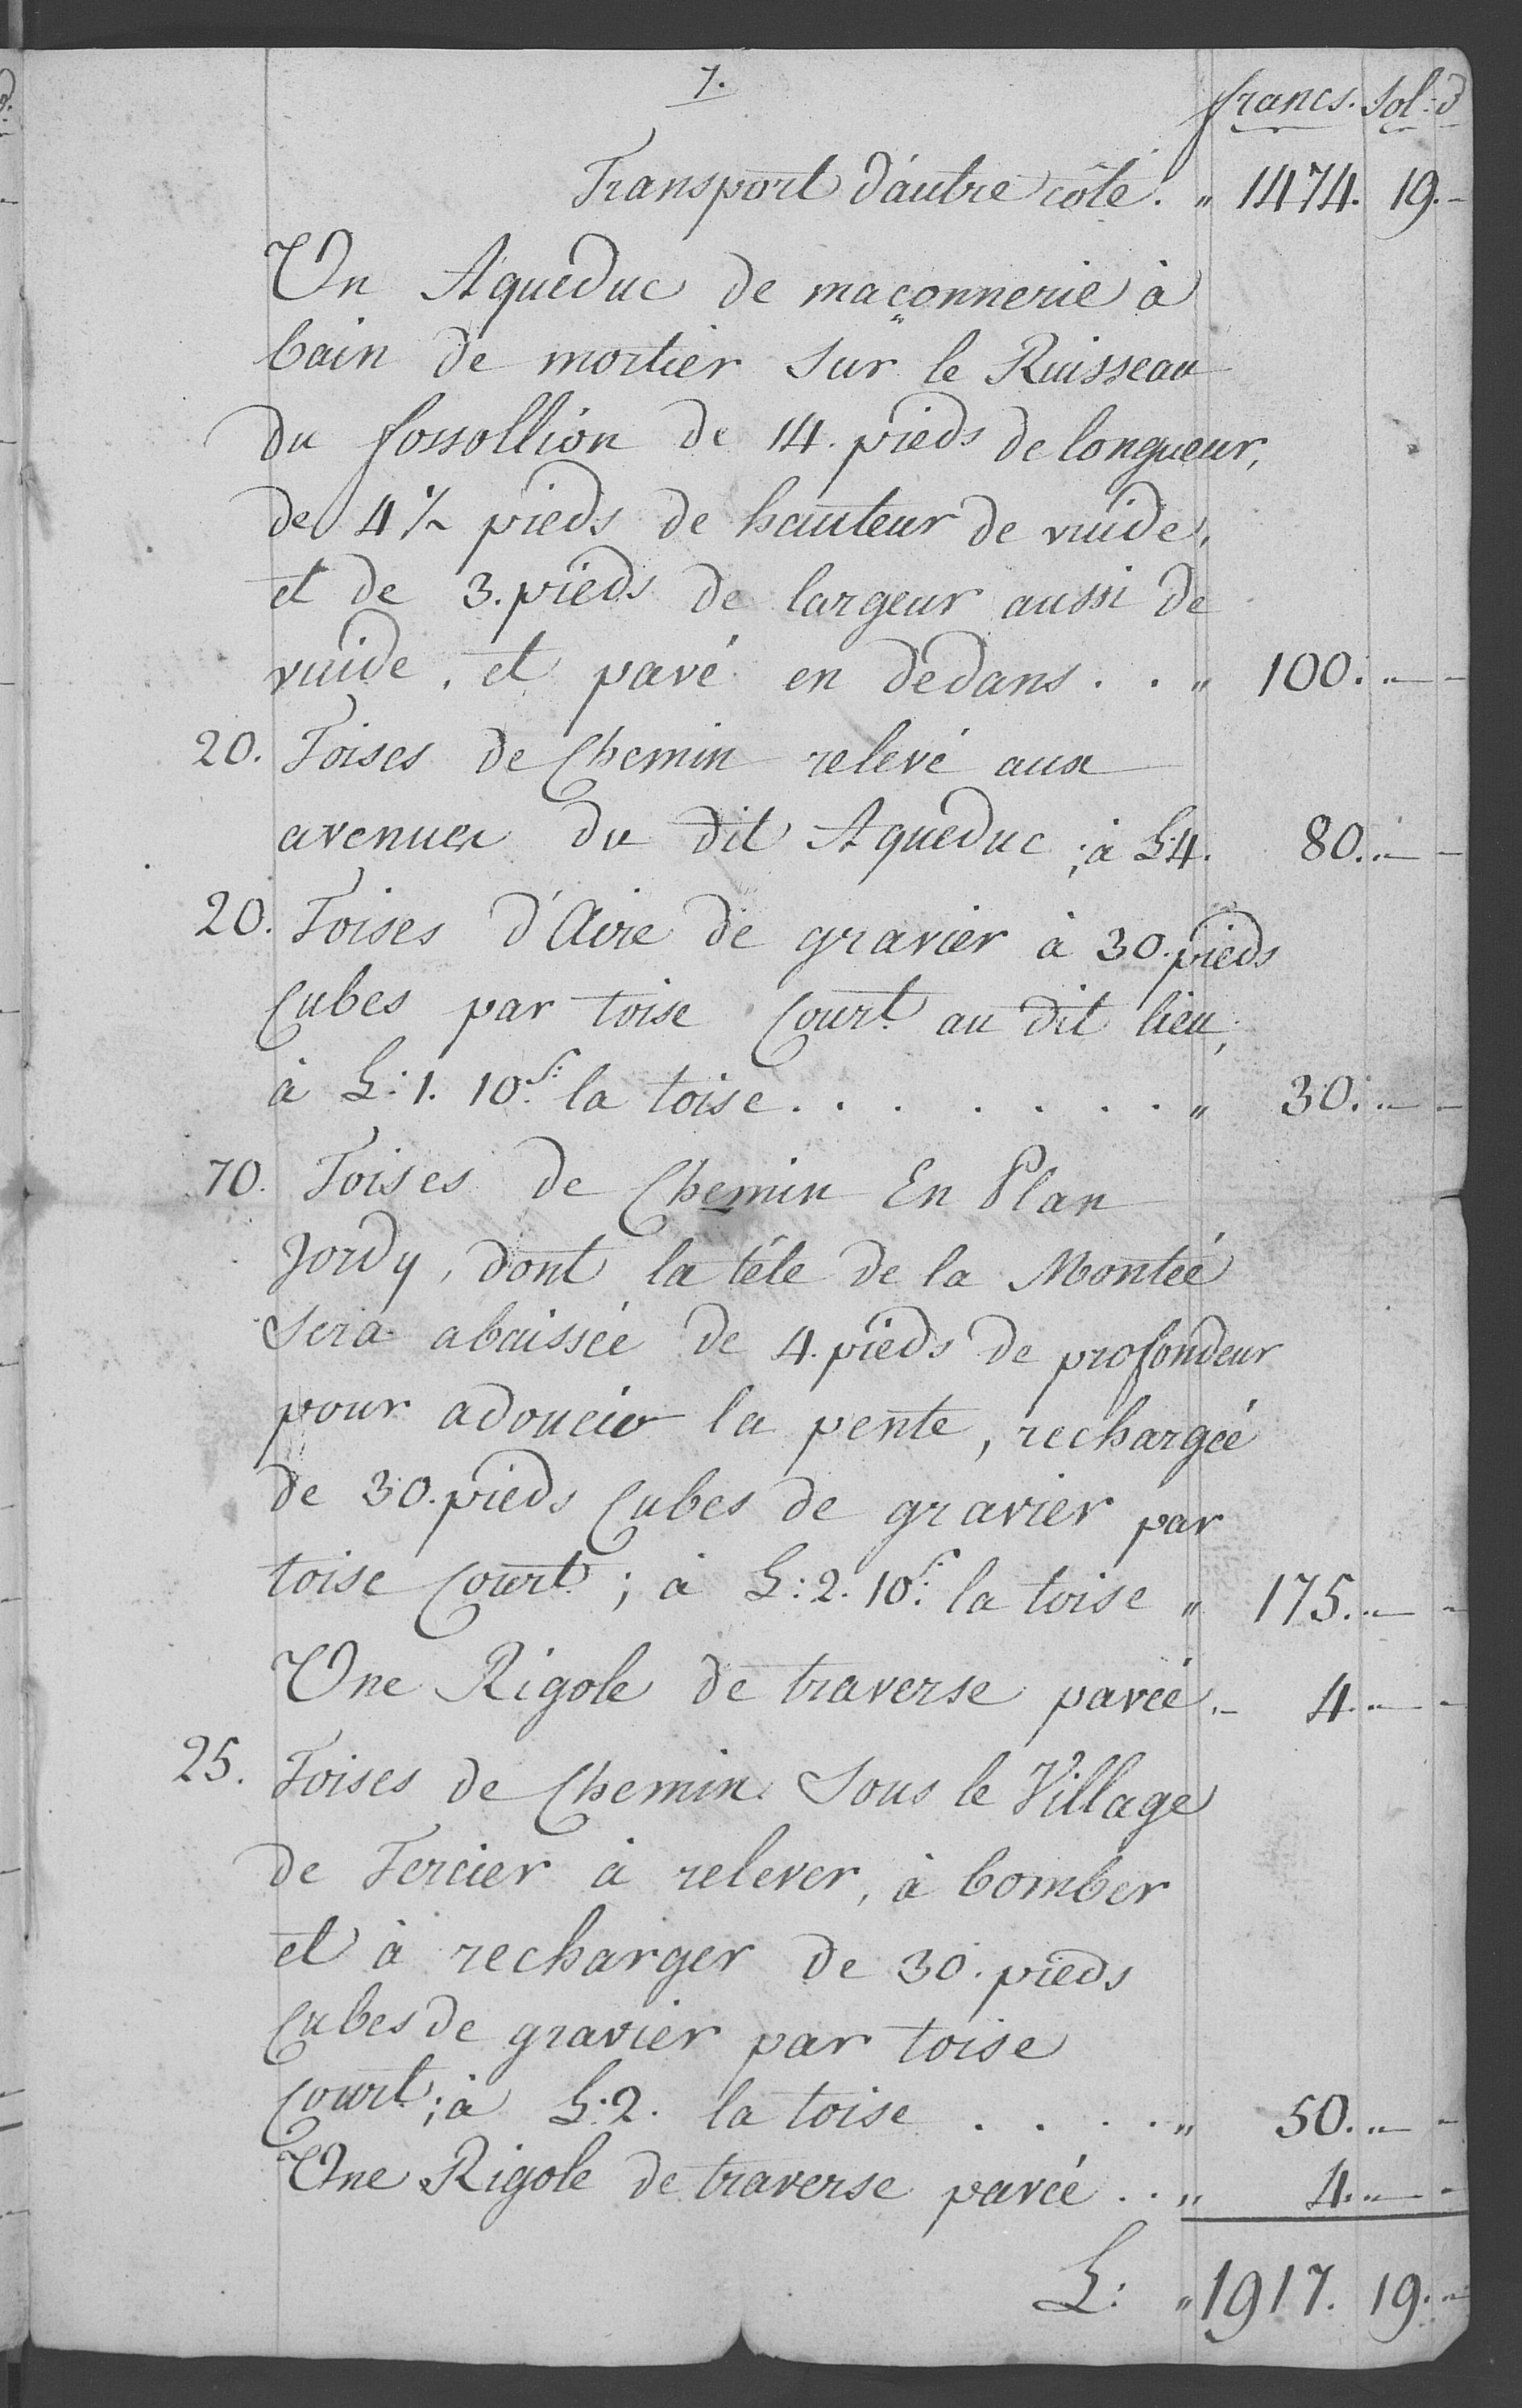 7.
francs. Sol: d
Transport d'autre côté. " 1474. 19. -
Un Aqueduc de maçonnerie à
bain de mortier sur le Ruisseau
du fossollion de 14. pieds de longueur,
de 4½ pieds de hauteur de vuide,
et de 3. pieds de largeur aussi de
vuide, et pavé en dedans . . " 100. " -
20. Toises de Chemin relevé aux
avenues du dit Aqueduc; à L:4. 80. " -
20. Toises d'Aire de gravier à 30. pieds
Cubes par toise Court. au dit lieu,
à L:1. 10s: la toise . . . . . . . " 30. " -
70. Toises de Chemin En Plan
Jordy, dont la tête de la Montée
sera abaissée de 4. pieds de profondeur
pour adoucir la pente, rechargée
de 30. pieds Cubes de gravier par
toise Court.; à L:2. 10s: la toise " 175. " -
Une Rigole de traverse pavée. - 4. " -
25. Toises de Chemin Sous le Village
de Tercier à relever, à bomber
et à recharger de 30. pieds
Cubes de gravier par toise
Court.; à L:2. la toise . . . . " 50. " -
Une Rigole de traverse pavée . . " 4. " -
L: " 1917. 19. -